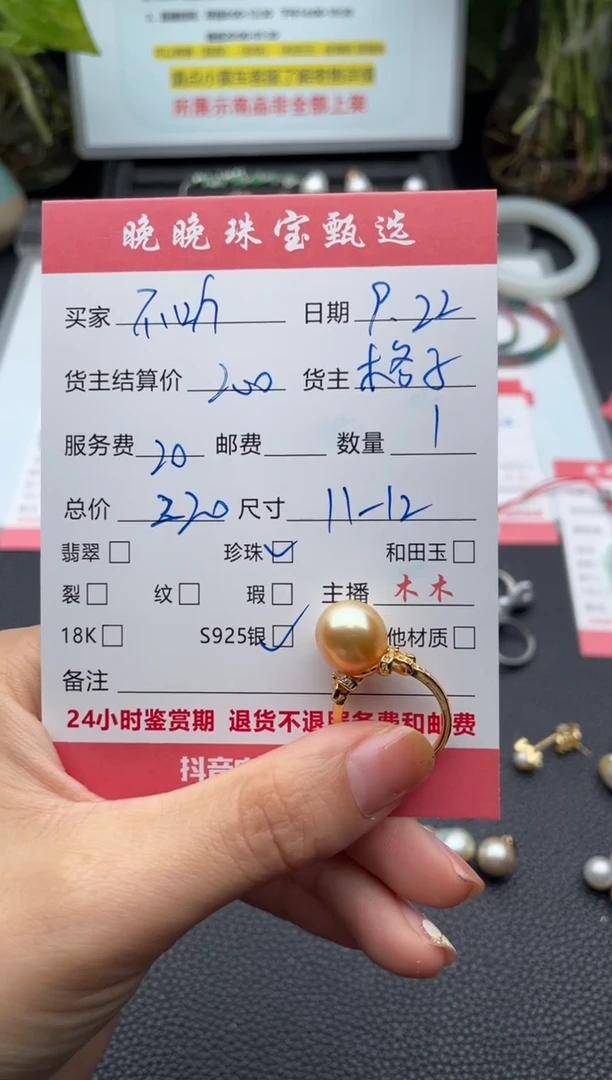 所展示商品非全部上架
晚晚珠宝甄选
买家 日期 9.22
货主结算价 200 货主 木格子
服务费 20 邮费 数量 1
总价 220 尺寸 11-12
翡翠 珍珠 和田玉
裂 纹 瑕 主播 木木
18K S925银 他材质
备注
24小时鉴赏期 退货不退服务费和邮费
抖音